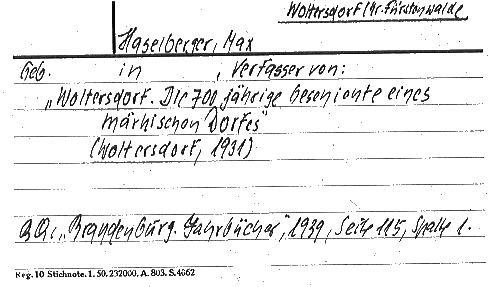 Woltersdorf Kr. Fürstenwalde
Haselberger, Max
Geb. in , Verfasser von:
„Woltersdorf. Die 700 jährige Geschichte eines
märkischen Dorfes"
(Woltersdorf, 1931)
„Brandenburg. Jahrbücher", 1939, Seite 115, Spalte 1.
Reg. 10 Stichnote. 1. 50. 232000. A. 803. S. 4662